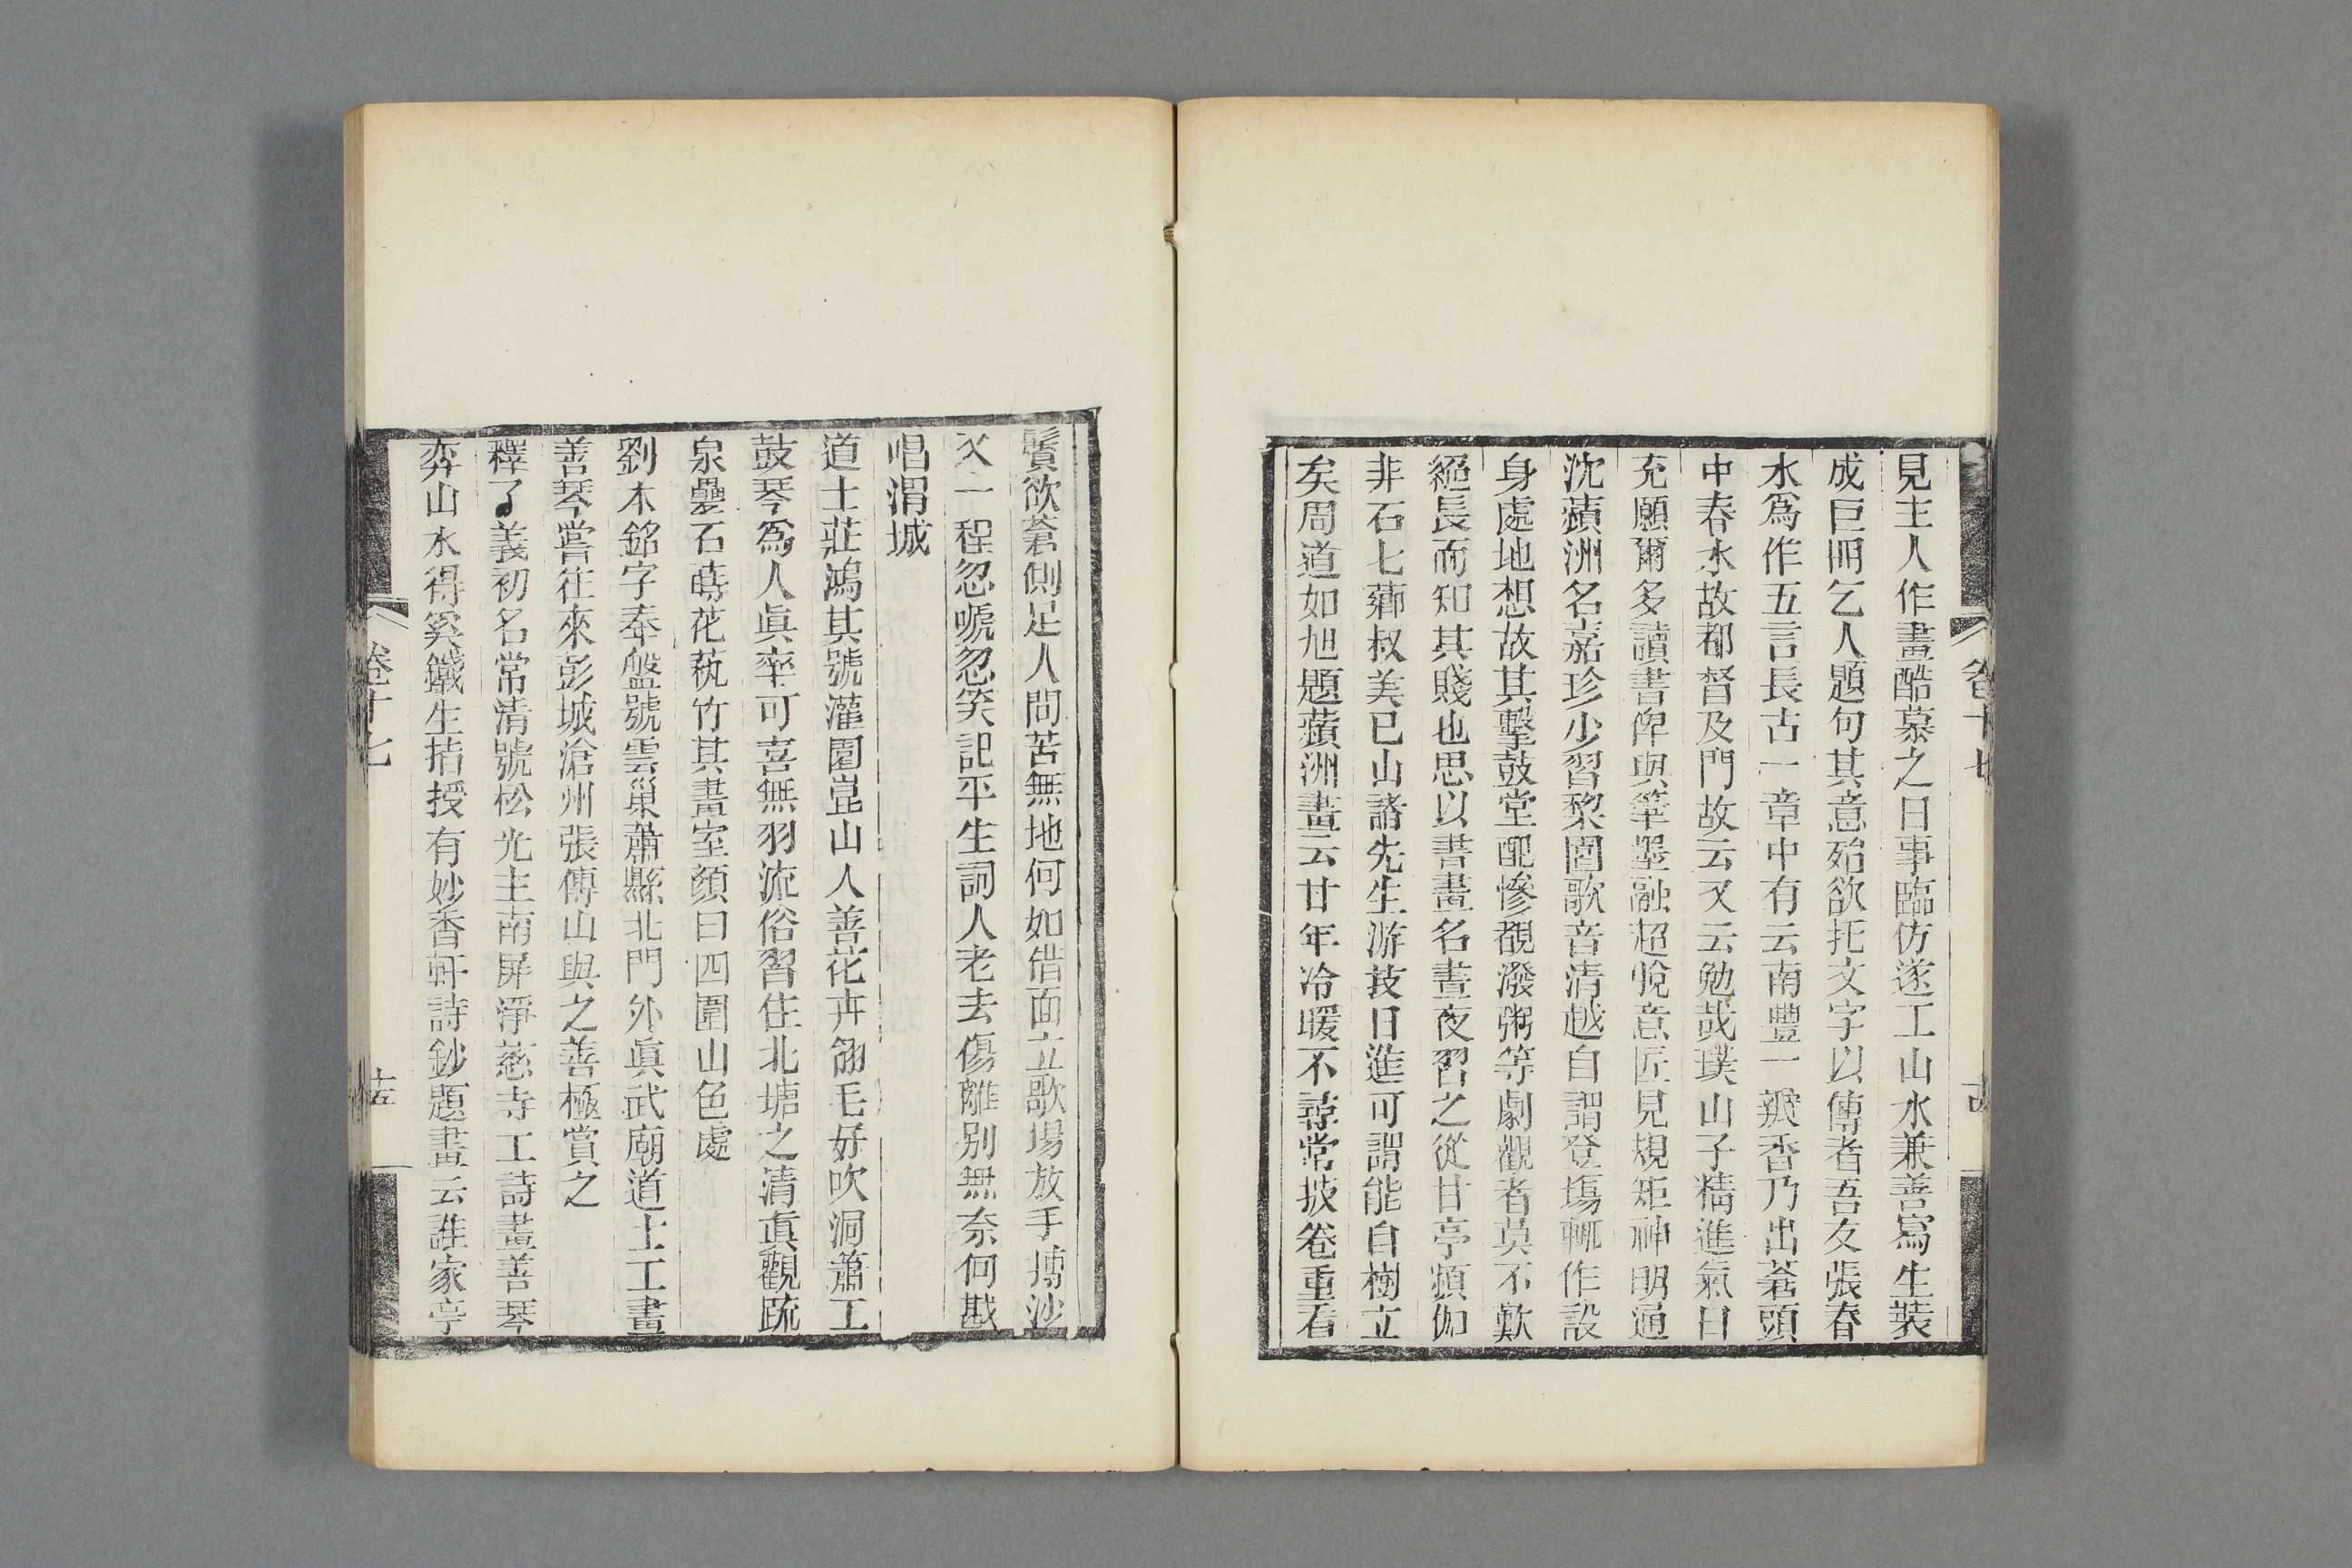 見主人作畫酷慕之日事臨仿遂工山水兼善寫生裝
成巨冊乞人題句其意殆欲托文字以傳者吾友張春
水爲作五言長古一章中有云南豐一瓣香乃出蒼頭
中春水故都督及門故云又云勉哉璞山子精進氣日
充願爾多讀書俾與筆墨融超悅意匠見規矩神明通
沈蘋洲名嘉珍少習黎園歌音清越自謂登塲輒作設
身處地想故其擊鼓堂配慘覩潑粥等劇觀者莫不歎
絕長而知其賤也思以書畫名晝夜習之從甘亭頻伽
非石七薌叔美已山諸先生游技日進可謂能自樹立
矣周道如旭題蘋洲畫云廿年冷暖不尋常披卷重看
卷十七
鬢欲蒼側足人間苦無地何如借面立歌塲放手摶沙
又一程忽嗁忽笑記平生詞人老去傷離別無奈何戡
唱渭城
道士莊鴻其號灌園崑山人善花卉翎毛好吹洞簫工
鼓琴爲人眞率可喜無羽流俗習住北塘之清眞觀疏
泉壘石蒔花蓺竹其畫室顏曰四圍山色處
劉木銘字奉盤號雲巢蕭縣北門外眞武廟道士工畫
善琴嘗往來彭城滄州張傳山與之善極賞之
釋了義初名常清號松光主南屛淨慈寺工詩畫善琴
弈山水得奚鐵生指授有妙香軒詩鈔題畫云誰家亭
卷十七
十五